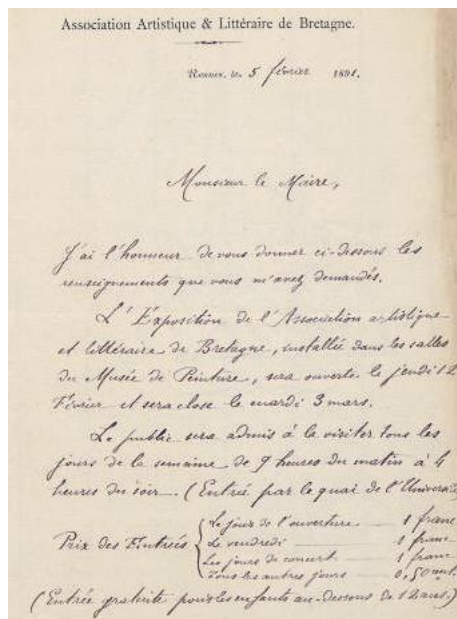 Association Artistique & Littéraire de Bretagne.
Rennes, le 5 février 1891.
Monsieur le Maire,
J'ai l'honneur de vous donner ci-dessous les
renseignements que vous m'avez demandés.
L'Exposition de l'Association artistique
et littéraire de Bretagne, installée dans les salles
du Musée de Peinture, sera ouverte le jeudi 12
Février et sera close le mardi 3 mars.
Le public sera admis à la visiter tous les
jours de la semaine de 9 heures du matin à 4
heures du soir. (Entrée par le quai de l'Université
Prix des Entrées
Le jour de l'ouverture 1 franc
Le vendredi 1 franc
Les jours de concert 1 franc
Tous les autres jours 0,50
(Entrée gratuite pour les enfants au-dessous de 12 ans.)